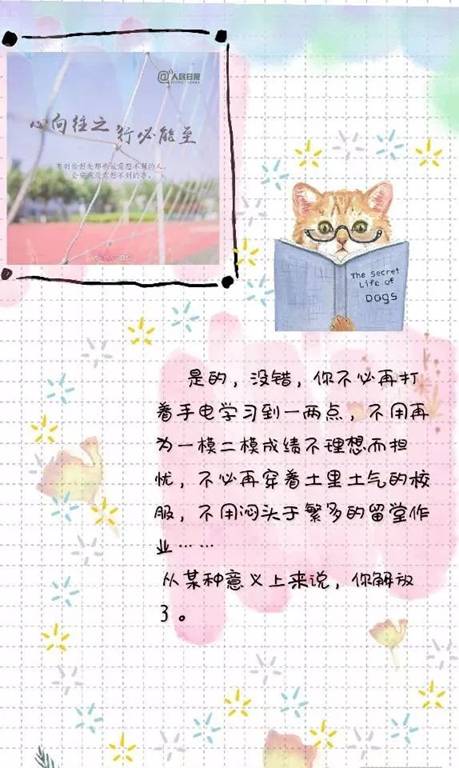 @人民日报
心向往之 行必能至
The Secret
Life of
DOGS
是的,没错,你不必再打
着手电学习到一两点,不用再
为一模二模成绩不理想而担
忧,不必再穿着土里土气的校
服,不用闷头于繁多的留堂作
业……
从某种意义上来说,你解放
3。